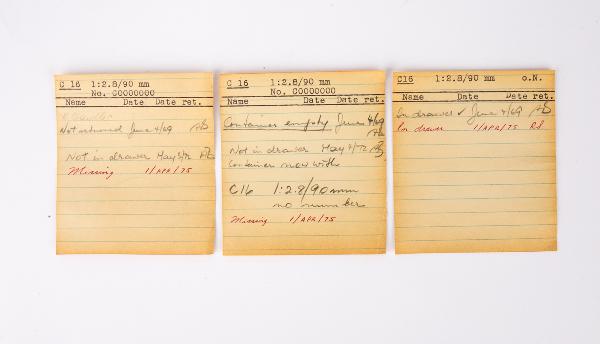 C 16 1:2.8/90 mm
No. C0000000
Name Date Date ret.
Not returned June 4/69 AS
Not in drawer May 5/72
Missing 1/APR/75
C 16 1:2.8/90 mm
No. C0000000
Name Date Date ret.
Container empty June 4/69
AS
Not in drawer May 5/72
Container now with
C16 1:2.8/90mm
no number
Missing 1/APR/75
C16 1:2.8/90 mm o.N.
Name Date Date ret.
In drawer ✓ June 4/69 AS
In drawer 1/APR/75